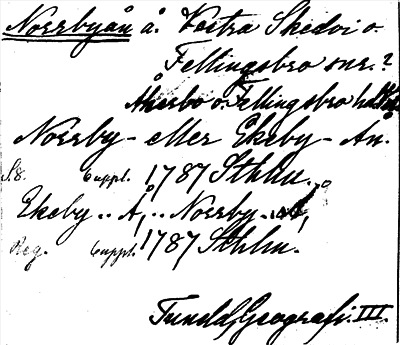 Norrbyån å. Vestra Skedvi o.
Fellingsbro snr.?
Åkerbo o. Fellingsbro hd
Norrby- eller Ekeby- An.
S. 8. Suppl. 1787 Sthlm.
Ekeby .. Å, .. Norrby
Reg. Suppl. 1787 Sthlm.
Tunelds Geografi. III.